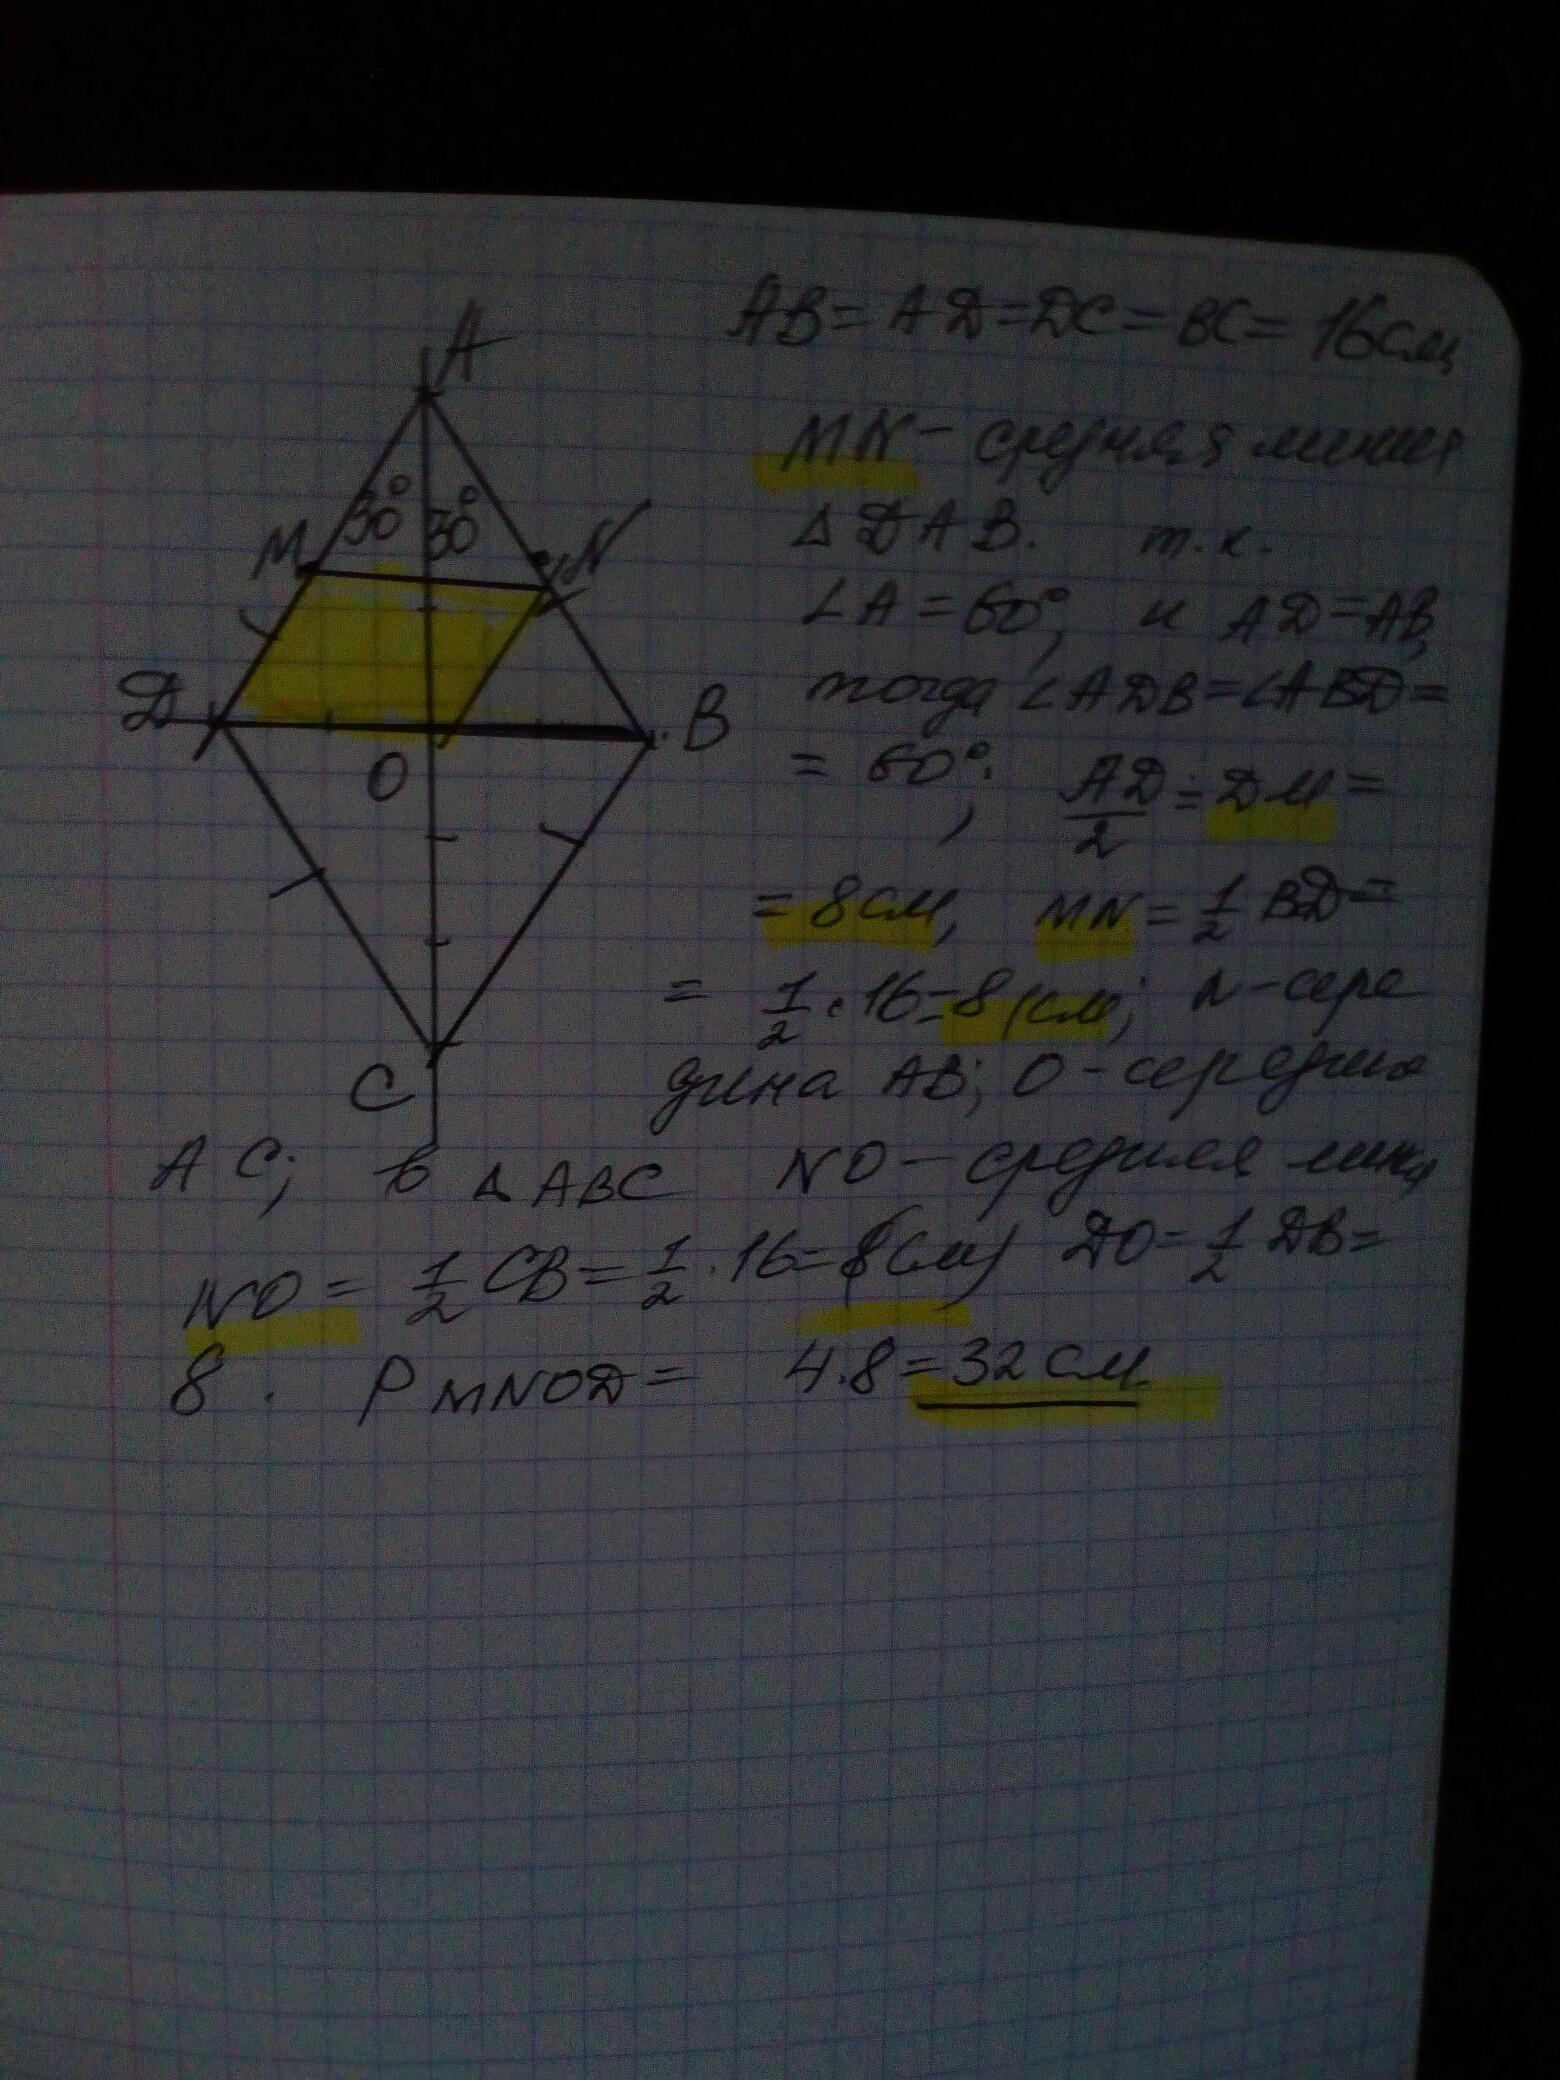 A
AB = AD = DC = BC = 16см
MN - средняя линия
30° 30°
M N
Δ DAB. т.к.
∠A = 60°, и AD = AB,
D B
тогда ∠ADB = ∠ABD =
O
= 60°; AD/2 = DM =
= 8см, MN = 1/2 BD =
= 1/2 · 16 = 8 (см); N - сере
C
дина AB; O - середина
AC; в Δ ABC NO - средняя линия
NO = 1/2 CB = 1/2 · 16 = 8(см) DO = 1/2 DB =
8. P MNOD = 4.8 = 32 см